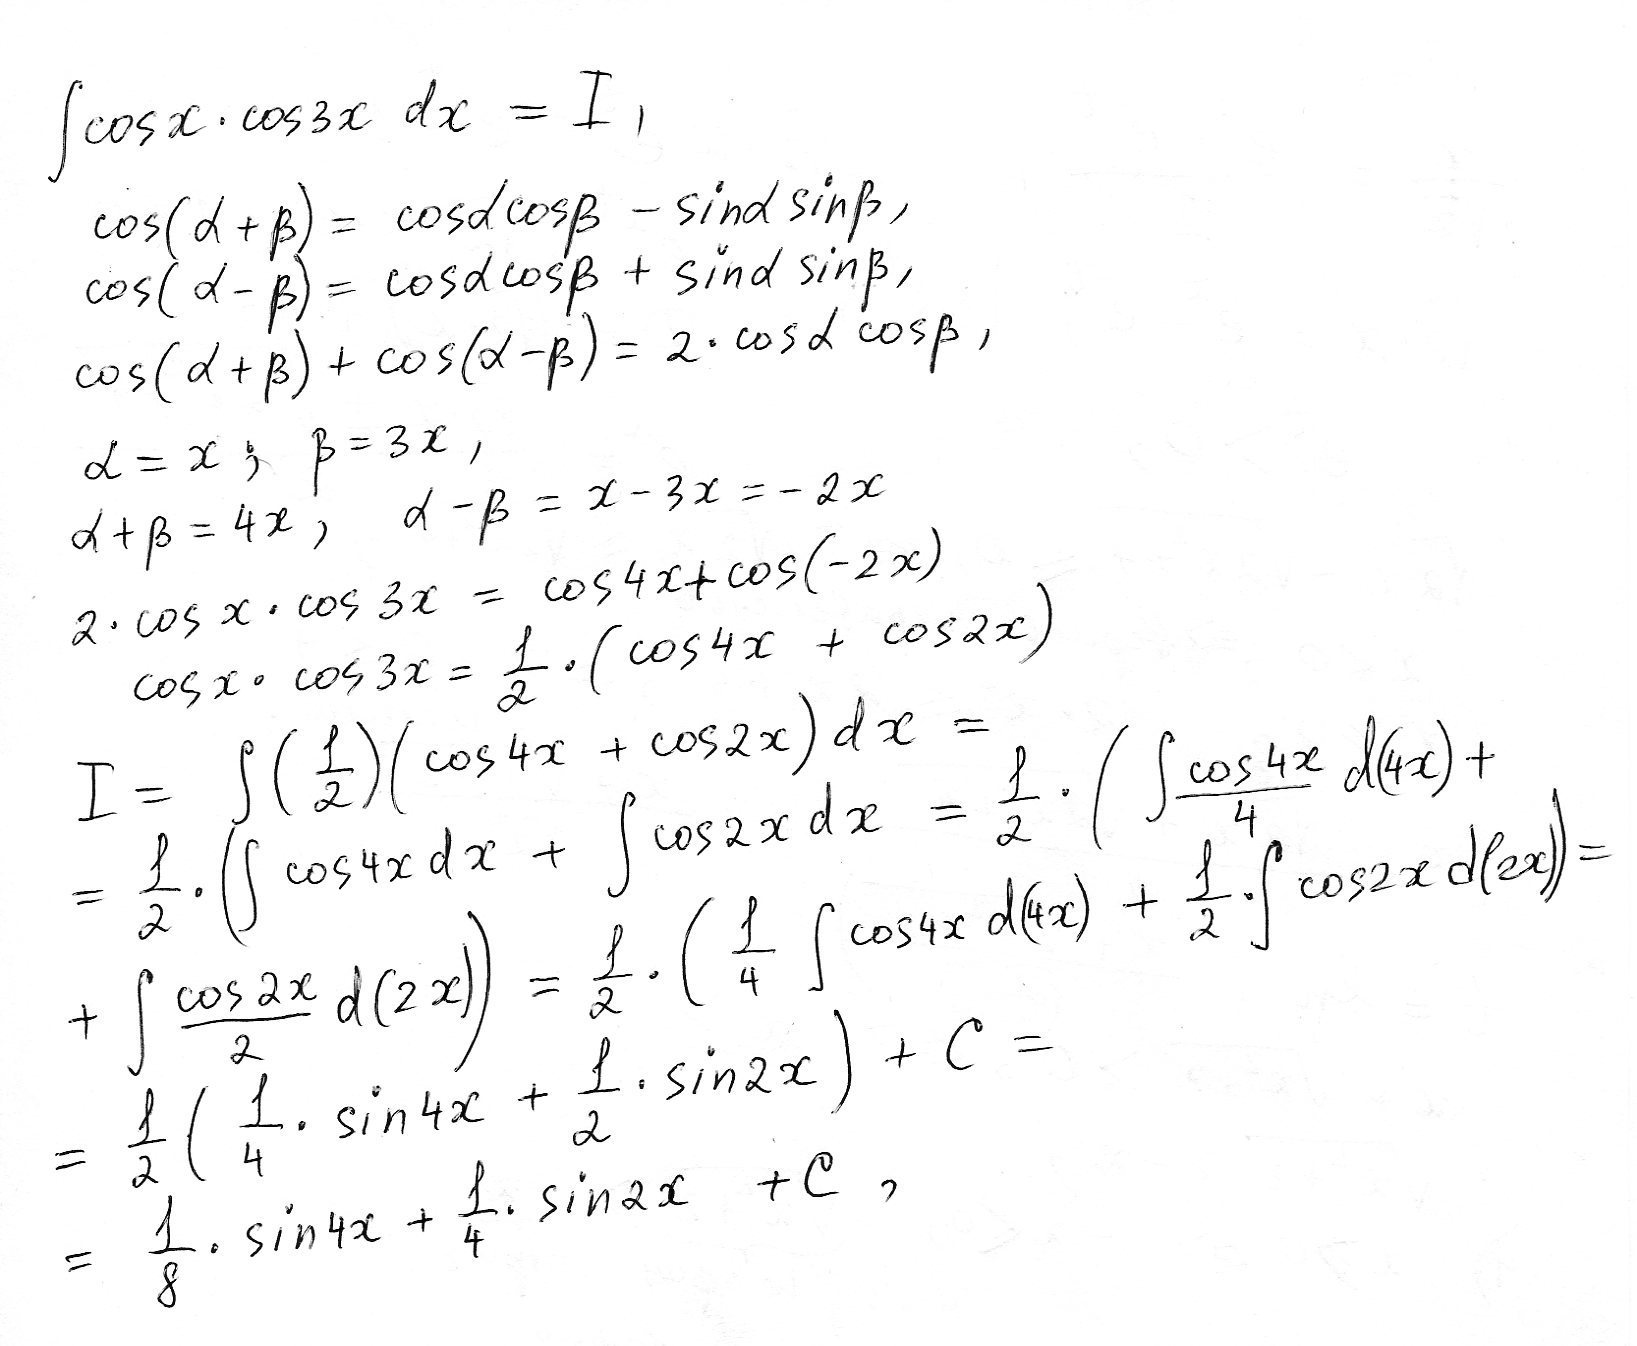 ∫ cosx · cos3x dx = I,
cos(α + β) = cosα cosβ − sinα sinβ,
cos(α − β) = cosα cosβ + sinα sinβ,
cos(α + β) + cos(α − β) = 2 · cosα cosβ,
α = x; β = 3x,
α + β = 4x, α − β = x − 3x = −2x
2 · cos x · cos 3x = cos4x + cos(−2x)
cosx · cos3x = 1/2 · (cos4x + cos2x)
I = ∫(1/2)(cos4x + cos2x) dx =
= 1/2 · (∫ cos4x dx + ∫ cos2x dx = 1/2 · (∫ cos4x/4 d(4x) +
+ ∫ cos2x/2 d(2x)) = 1/2 · (1/4 ∫ cos4x d(4x) + 1/2 · ∫ cos2x d(2x)) =
= 1/2 (1/4 · sin4x + 1/2 · sin2x) + C =
= 1/8 · sin4x + 1/4 · sin2x + C,